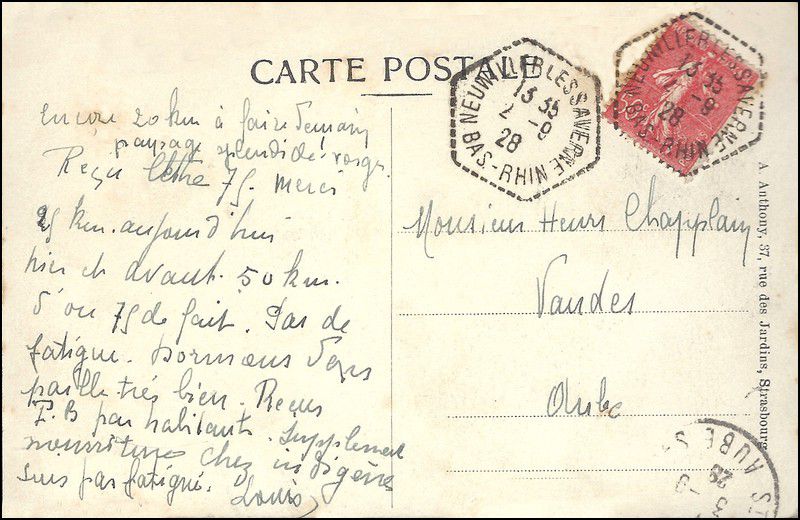 CARTE POSTALE
NEUWILLER LES SAVERNE
13 35
2 -9
28
BAS-RHIN
NEUWILLER LES SAVERNE
13 35
2 -9
28
BAS-RHIN
50c
Encore 20 km à faire demain
paysage splendide vosges.
Reçu lettre 75. merci
25 km. aujourd'hui
hier et avant. 50 km.
d'ou 75 de fait. Pas de
fatigue. Dormons dans
paille très bien. Reçus
T. B par habitants. Supplément
nourriture chez indigènes
suis pas fatigué. Louis
Monsieur Henri Chapplain
Vaudes
Aube
A. Anthony, 37, rue des Jardins, Strasbourg
AUBE
28